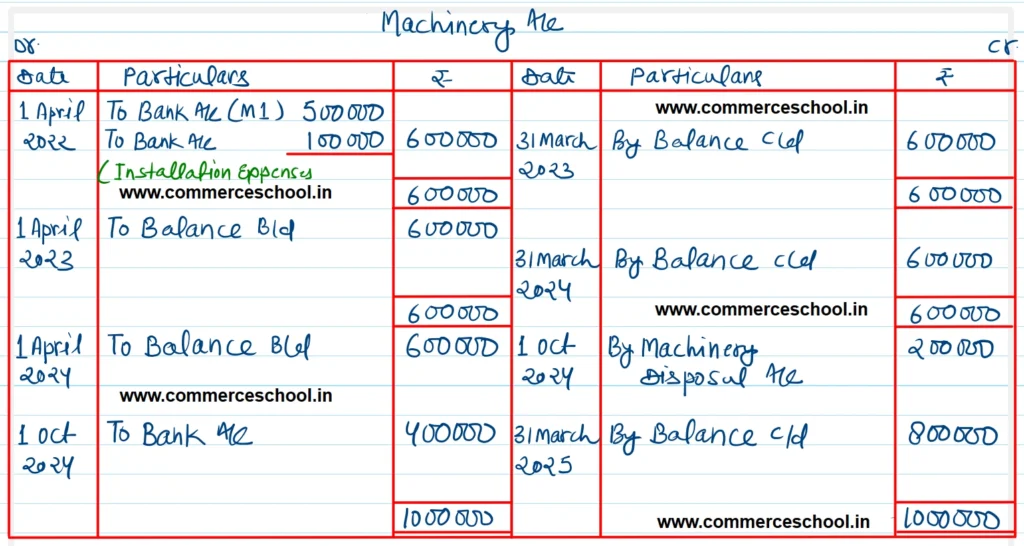 Machinery A/c
Dr. Cr.
Date Particulars ₹ Date Particulars ₹
www.commerceschool.in
1 April To Bank A/c (M1) 500000
2022 To Bank A/c 100000 600000 31 March By Balance c/d 600000
(Installation Expenses 2023
www.commerceschool.in 600000 600000
1 April To Balance B/d 600000
2023 31 March By Balance c/d 600000
2024
600000 www.commerceschool.in 600000
1 April To Balance B/d 600000 1 Oct By Machinery 200000
2024 2024 Disposal A/c
www.commerceschool.in
1 Oct To Bank A/c 400000 31 March By Balance c/d 800000
2024 2025
1000000 www.commerceschool.in 1000000